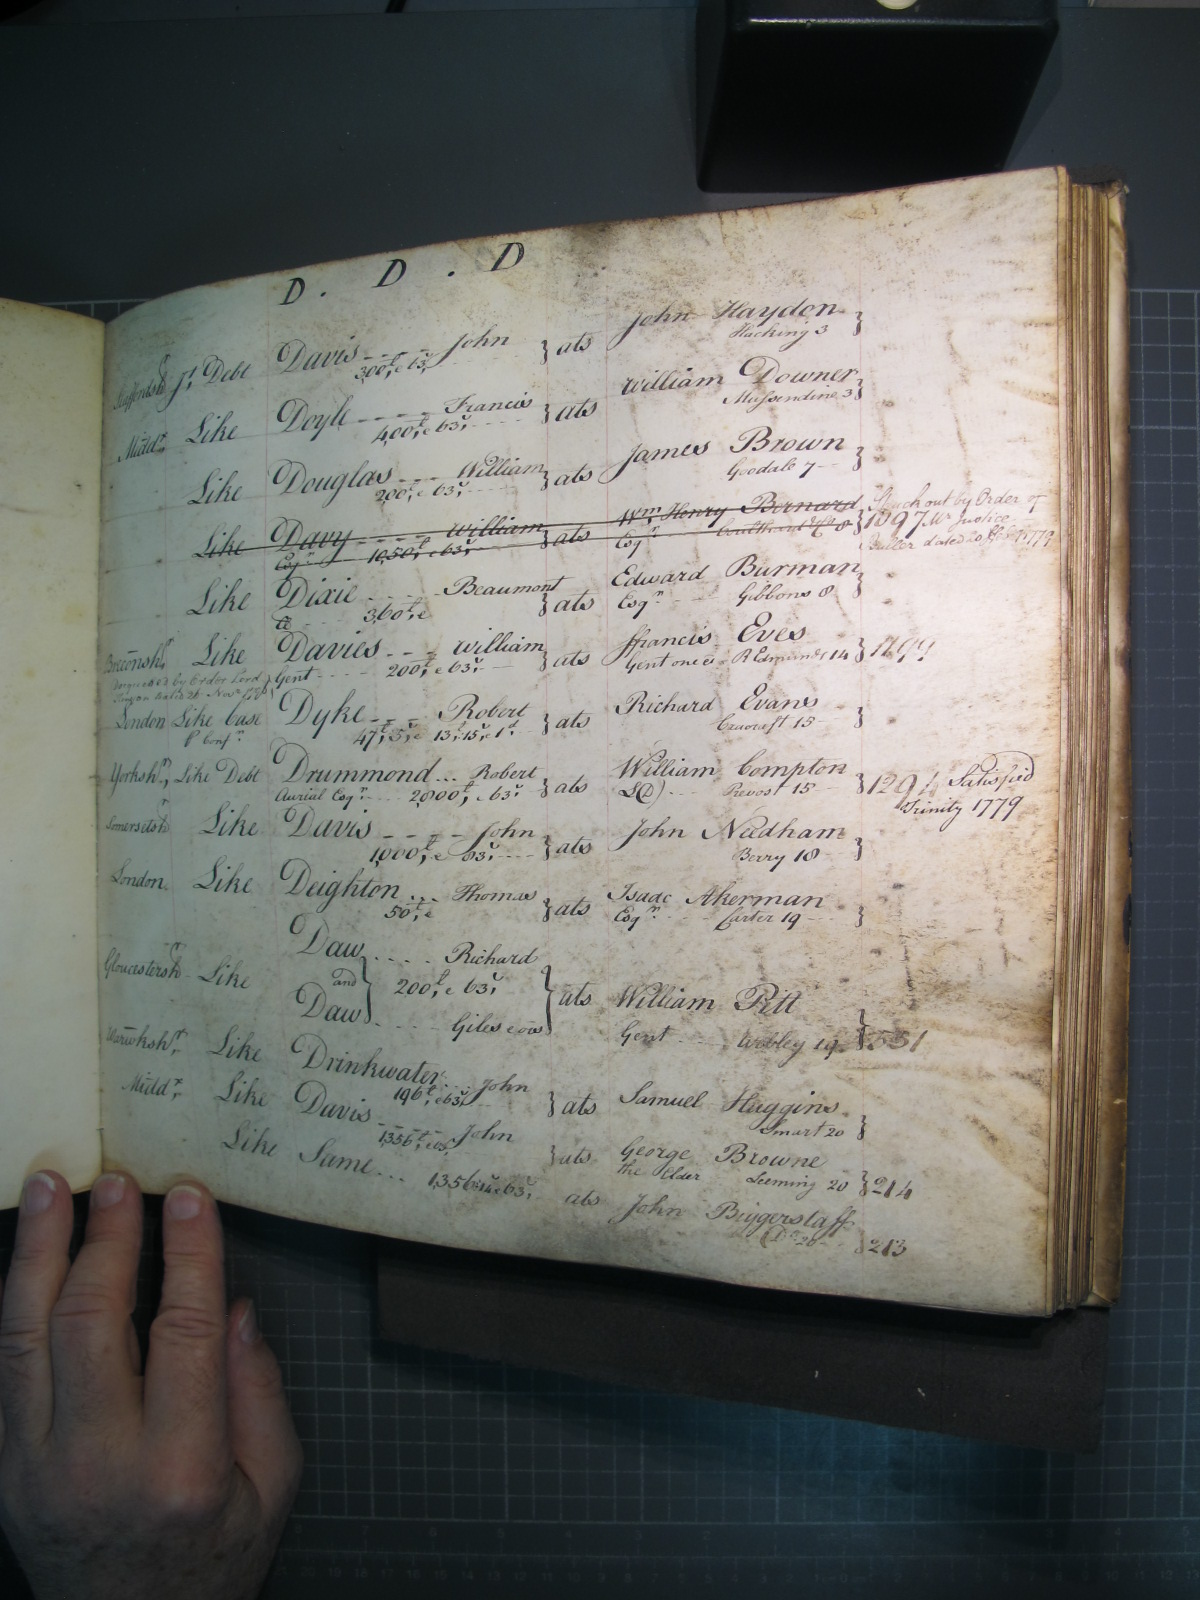 D . D . D
Staffordsh. Jt. Debt Davis - - - - John } ats John Haydon }
300£, & 63s, Hucking 3
Middx. Like Doyle - - - - Francis } ats William Downer }
400£, & 63s, - - - - Mussendine 3
Like Douglas - - - William } ats James Brown }
200£, & 63s, - - - - Goodale 7 -
Like Davy - - - - William } ats Wm. Henry Bernard } 1097 Struck out by Order of
Esqr. 1050£, & 63s, Esqr. 8 Mr. Justice
Buller dated 1779
Like Dixie - - - - Beaumont } ats Edward Burman }
360£, & Esqr. - - - Gibbons 8
Breconsh. Like Davies - - - William } ats ffrancis Eves } 1199
by Order Lord Gent - - - - 200£, & 63s, - - Gent one &c. R Edmunds 14
Novr.
London Like Case Dyke - - - Robert } ats Richard Evans }
P Confn. 47£, 5s, & 13£, 15s, & 1d. 15 -
Yorksh. Like Debt Drummond ... Robert } ats William Compton } 1294 Satisfied
Aurial Esqr. - - - 2000£, & 63s, - - - Prevost 15 - Trinity 1779
Somersetsh. Like Davis - - - - John } ats John Needham }
1000£, & 63s, - - - - Berry 18 -
London. Like Deighton ... Thomas } ats Isaac Akerman }
50£, & Esqr. - - - Carter 19 -
Gloucestersh. Like Daw - - - - Richard
and 200£, & 63s, } ats William Pitt }
Daw - - - - Giles Gent - - - Webley 19 551
Warwksh. Like Drinkwater - - - John } ats Samuel Huggins }
196£, & 63s, Smart 20
Middx. Like Davis - - - John } ats George Browne } 214
1356£, the Elder Leeming 20
Like Same ... 1,356:14 & 63s, ats John Biggerstaff } 213
Do. 20 - -